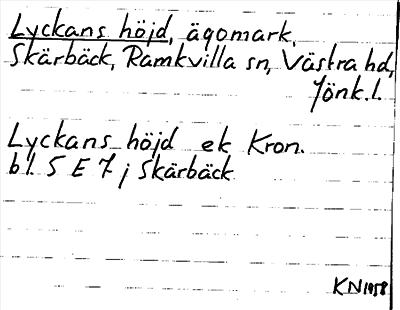 Lyckans höjd, ägomark,
Skärbäck, Ramkvilla sn, Västra hd,
Jönk.l.
Lyckans höjd ek Kron.
bl. 5 E 7 j Skärbäck
KN 1958